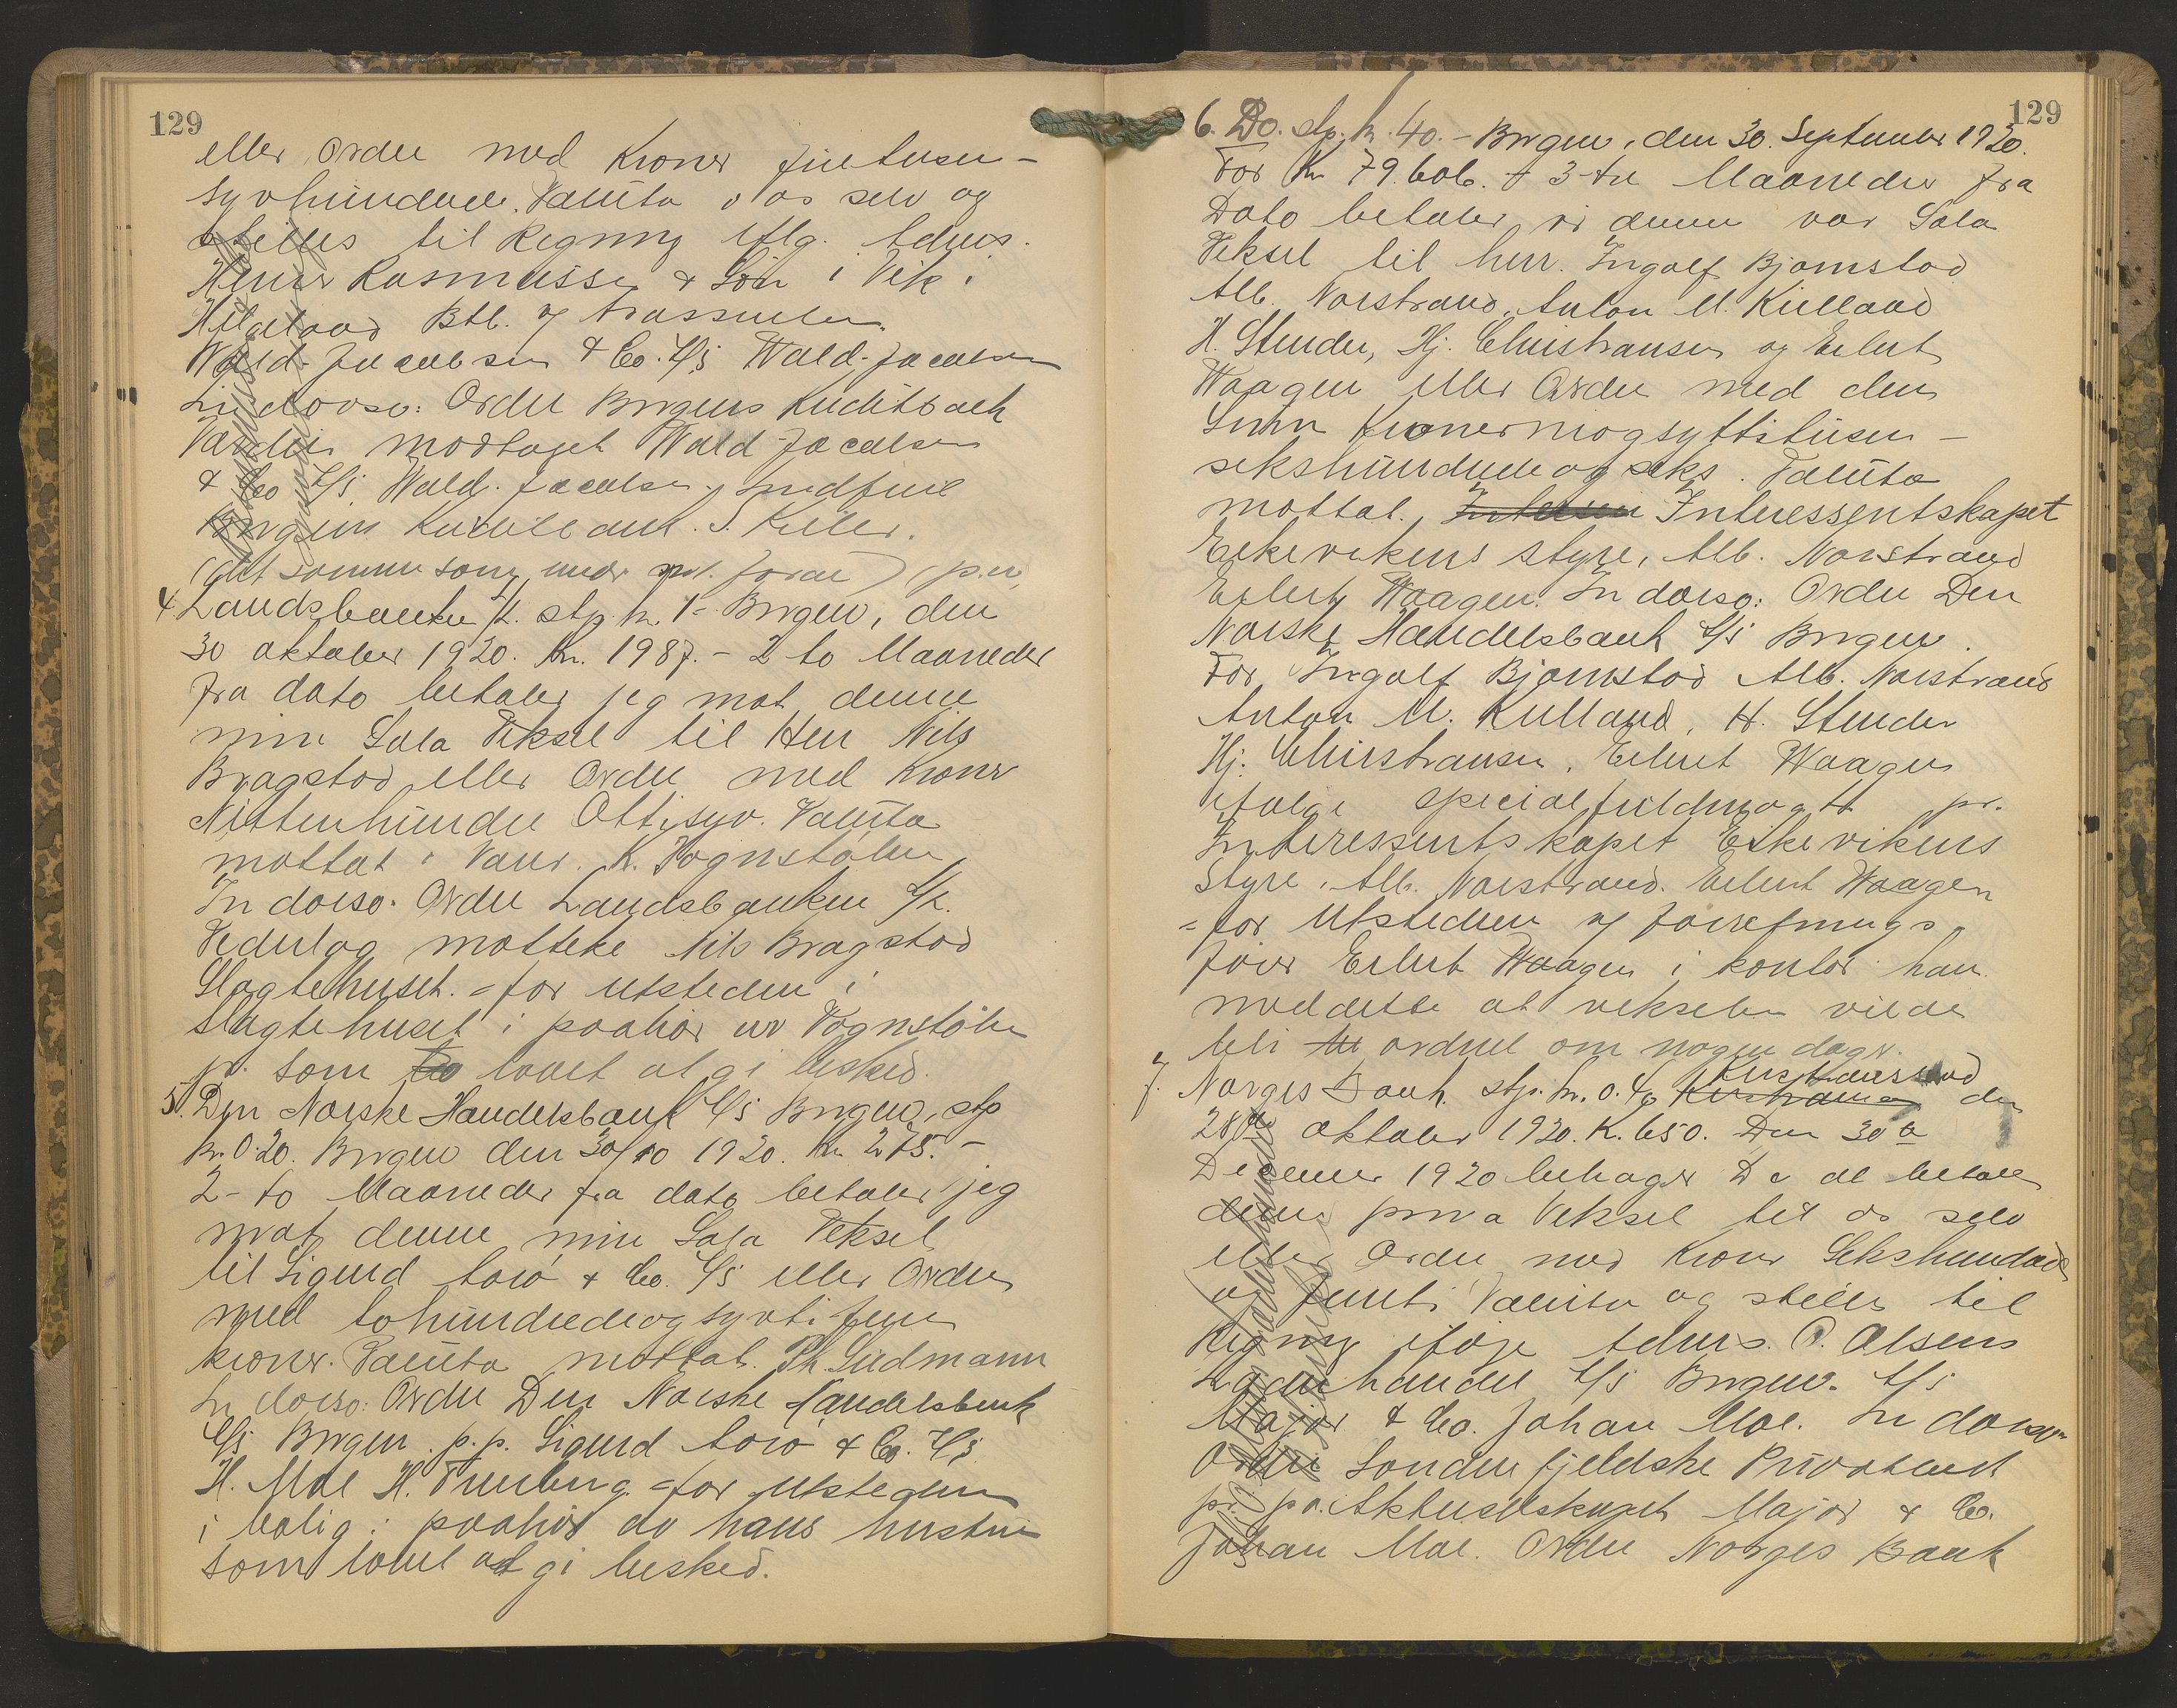 129
eller Ordre med Kroner firetusen-
syvhundrede. Valuta i os selv og
stilles til Regning iflg. Advis.
Herrer Rasmussen & Sön i Vik i
Helgeland Btl. Trassenten
Wald. Jacobsen & Co. A/S Wald. Jacobsen
In dorso: Ordre Bergens Kreditbank
Værdien modtaget Wald Jacobsen
& Co A/S. Wald. Jacobsen
Bergens Kreditbank. S.
(det samme som under forrige)
4. Landsbanken A/L. stp. kr. 1- Bergen, den
30 oktober 1920. Kr. 1987.- 2 to Maaneder
fra dato betaler jeg mot denne
min Sola Veksel til Herr Nils
Bragstad eller Ordre med Kroner
Nittenhundre Ottisyv. Valuta
mottat i Varer. K. Vognstölen
In dorso. Ordre Landsbanken A/L.
Vederlag motteke Nils Bragstad
Slagtehuset. = for utstederen i
Slagtehuset i paahör av Vognstölen
jr. som lovet at gi besked.
5. Den Norske Handelsbank A/S Bergen, stp
kr. 0.20. Bergen den 30/10 1920. Kr 275.-
2- to Maaneder fra dato betaler jeg
mot denne min Sola Veksel
til Sigurd & Co. A/S eller Ordre
med tohundredeogsyvti fem
kroner. Valuta mottat. Ph. Lüdmann
In dorso: Ordre Den Norske Handelsbank
A/S Bergen. p.p. Sigurd & Co. A/S
H. Moe H. = for Utstederen
i bolig i paahör av hans hustru
som lovet at gi besked.
129
6. Do. stp. kr. 40.- Bergen, den 30. September 1920.
For Kr 79.606. 3-tre Maaneder fra
Dato betaler vi denne vor Sola
Veksel til herr. Ingolf Bjørnstad
Alb. Norstrand, Anton M. Kielland
H. Stender, Hj. Christiansen og Eilert
Waagen eller Ordre med den
Sum Kroner niogsyttitusen-
sekshundrede og seks. Valuta
mottat. Interessentskapet
Eikevikens styre, Alb. Norstrand
Eilert Waagen. In dorso: Ordre Den
Norske Handelsbank A/S Bergen.
For Ingolf Bjørnstad Alb. Norstrand
Anton M. Kielland, H. Stender
Hj. Christiansen. Eilert Waagen
ifølge specialfuldmagt pr.
Interessentskapet Eikevikens
Styre. Alb. Norstrand. Eilert Waagen
= for Utstederen forretnings
förer Eilert Waagen i kontor han
meddelte at vekselen vilde
bli ordnet om nogen dager.
7. Norges Bank. stp. kr. 0.40 Kristiansund den
28de oktober 1920. K. 650. Den 30te
Decemer 1920 behager De at betale
denne prima Veksel til os selv
eller Ordre med Kroner Sekshundrede
og femti Valuta og stilles til
Regning ifölge Advis. O. Olsens
Læderhandel A/S Bergen. A/S
Major & Co. Johan Moe. In dorso
Ordre Söndenfjeldske Privatbank
pr. pr. Aktieselskapet Major & Co.
Johan Moe. Ordre Norges Bank